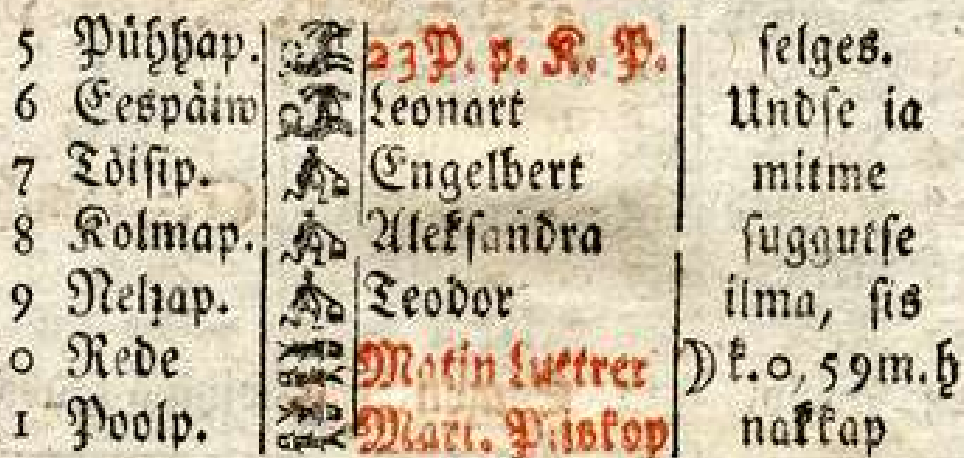 5 Pühhap. 23 P. p. K. P. selges.
6 Eespäiw Leonart Undse ia
7 Töisip. Engelbert mitme
8 Kolmap. Aleksandra suggutse
9 Neljap. Teodor ilma, sis
0 Rede Luttrer ☽ k. 0, 59 m. h
1 Poolp. Mart. Piiskop nakkap